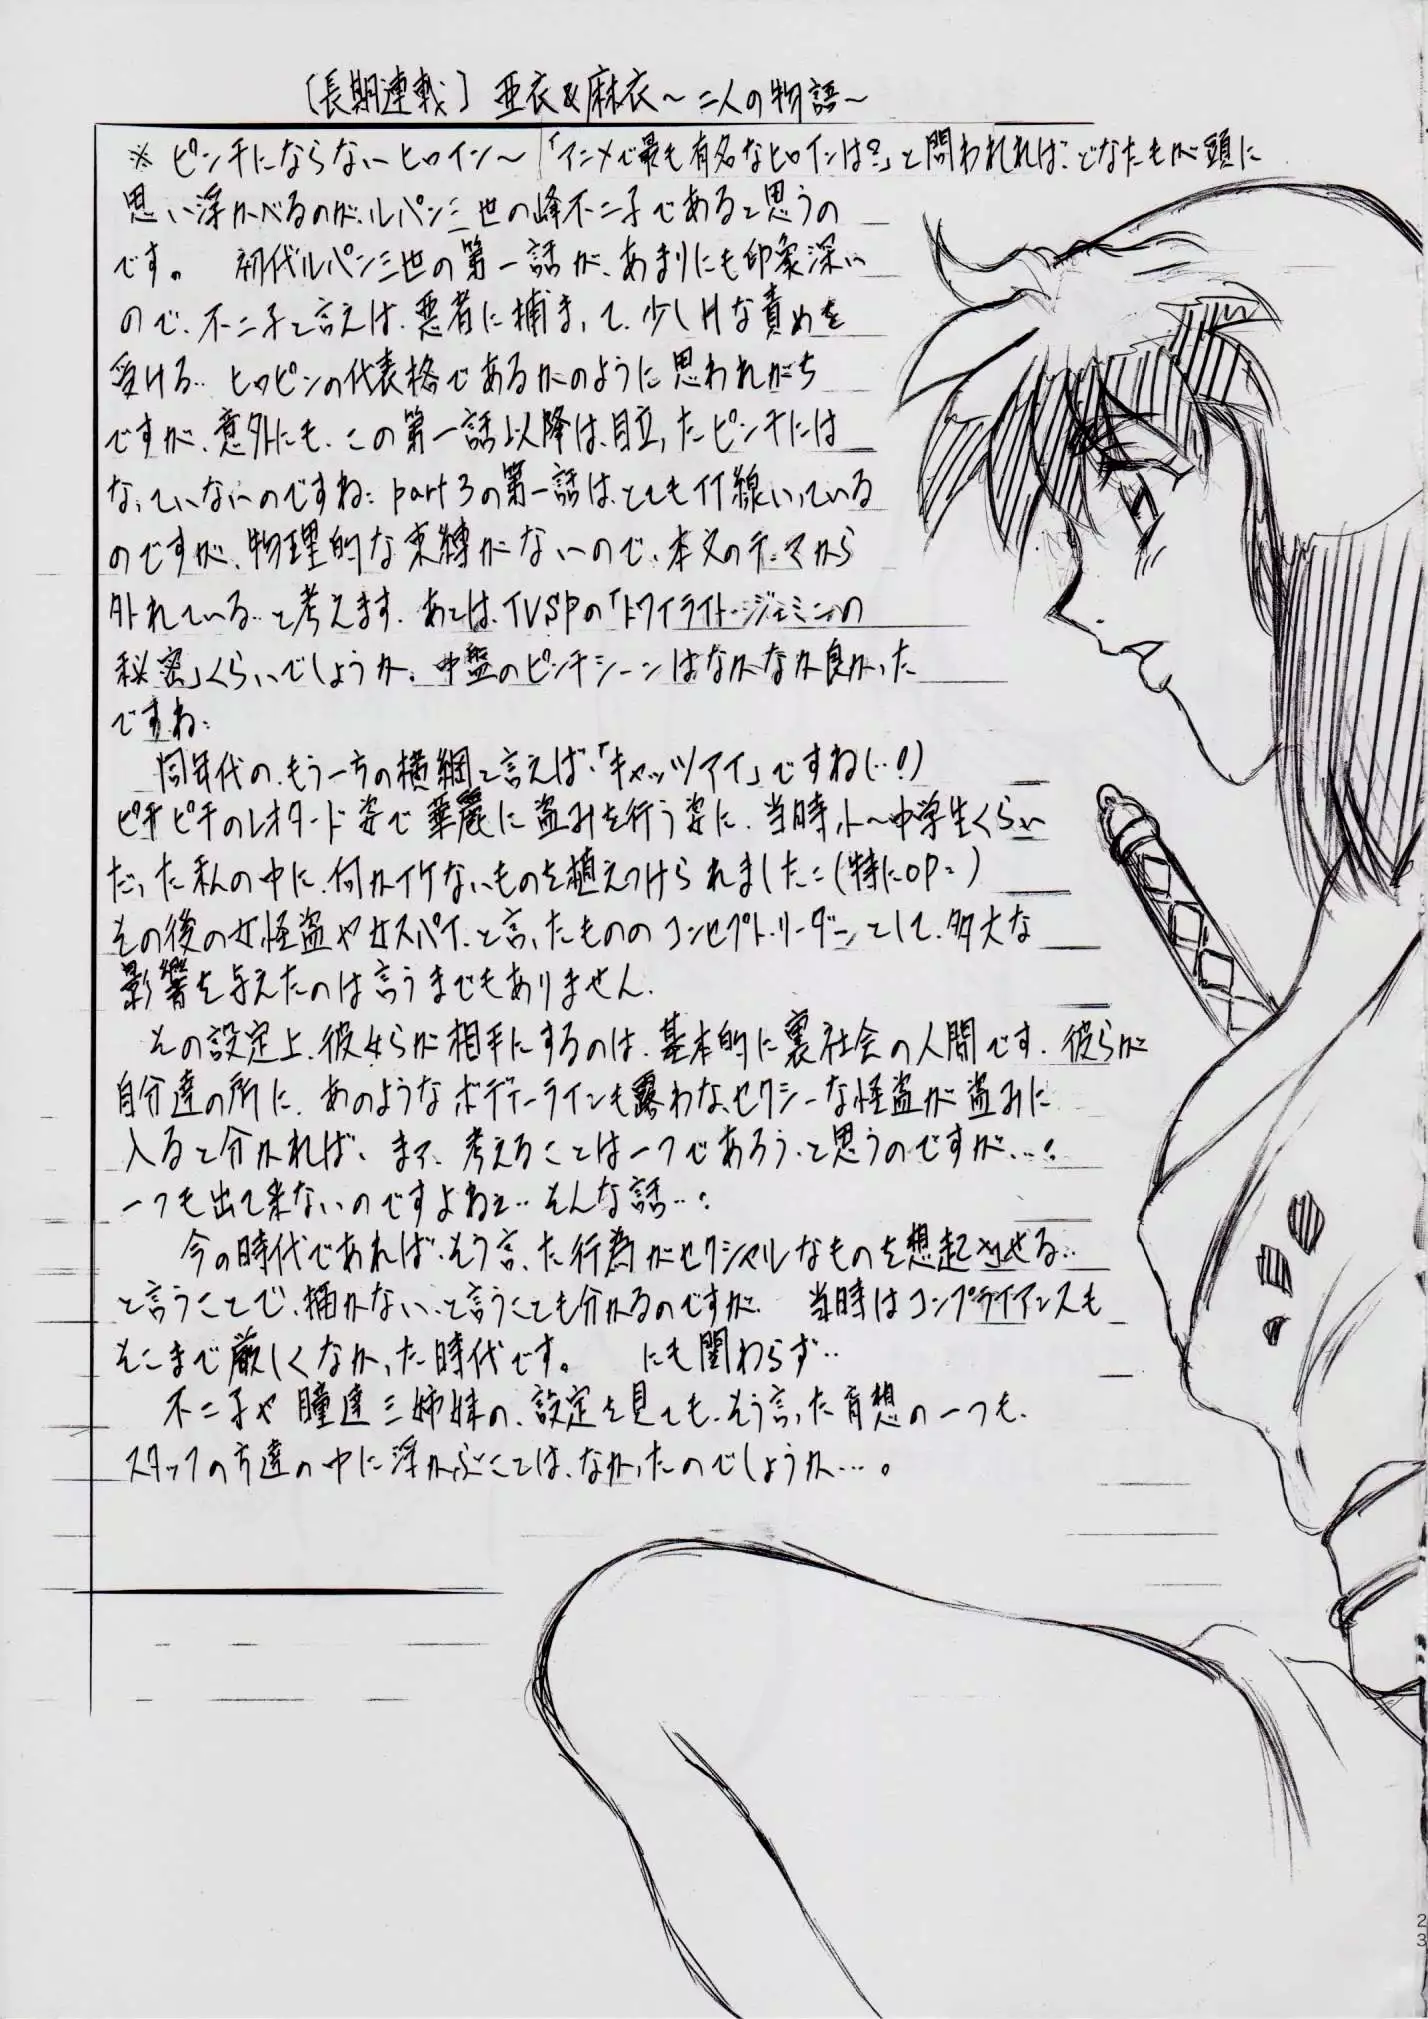 〔長期連載〕 亜衣&麻衣～二人の物語～
※ ピンチにならないヒロイン～「アニメで最も有名なヒロインは?」と問われれば、どなたもが頭に
思い浮かべるのが、ルパン三世の峰不二子であると思うの
です。 初代ルパン三世の第一話が、あまりにも印象深い
ので、不二子と言えば、悪者に捕まって、少しHな責めを
受ける… ヒロピンの代表格であるかのように思われがち
ですが、意外にも、この第一話以降は、目立ったピンチには
なっていないのですね: part3の第一話は、とてもイイ線いっている
のですが、物理的な束縛がないので、本文のテーマから
外れている…と考えます。あとは、TVSPの「トワイライト・ジェミニの
秘密」くらいでしょうか。中盤のピンチシーンはなかなか良かった
ですね:
同年代の、もう一方の横綱と言えば、「キャッツアイ」ですね(…!)
ピチピチのレオタード姿で華麗に盗みを行う姿に、当時、小～中学生くらい
だった私の中に、何かイケないものを植えつけられました:(特にOP:)
その後の女怪盗や女スパイ、と言ったもののコンセプト・リーダーとして、多大な
影響を与えたのは言うまでもありません。
その設定上、彼女らが相手にするのは、基本的に裏社会の人間です。彼らが
自分達の所に、あのようなボディーラインも露わな、セクシーな怪盗が盗みに
入ると分かれば、まず、考えることは一つであろう、と思うのですが…。
一つも出て来ないのですよねぇ…そんな話…。
今の時代であれば、そう言った行為がセクシャルなものを想起させる…
と言うことで、描かない、と言うことも分かるのですが、 当時はコンプライアンスも
そこまで厳しくなかった時代です。 にも関わらず…
不二子や瞳達三姉妹の、設定を見ても、そう言った妄想の一つも、
スタッフの方達の中に浮かぶことは、なかったのでしょうか…。
23